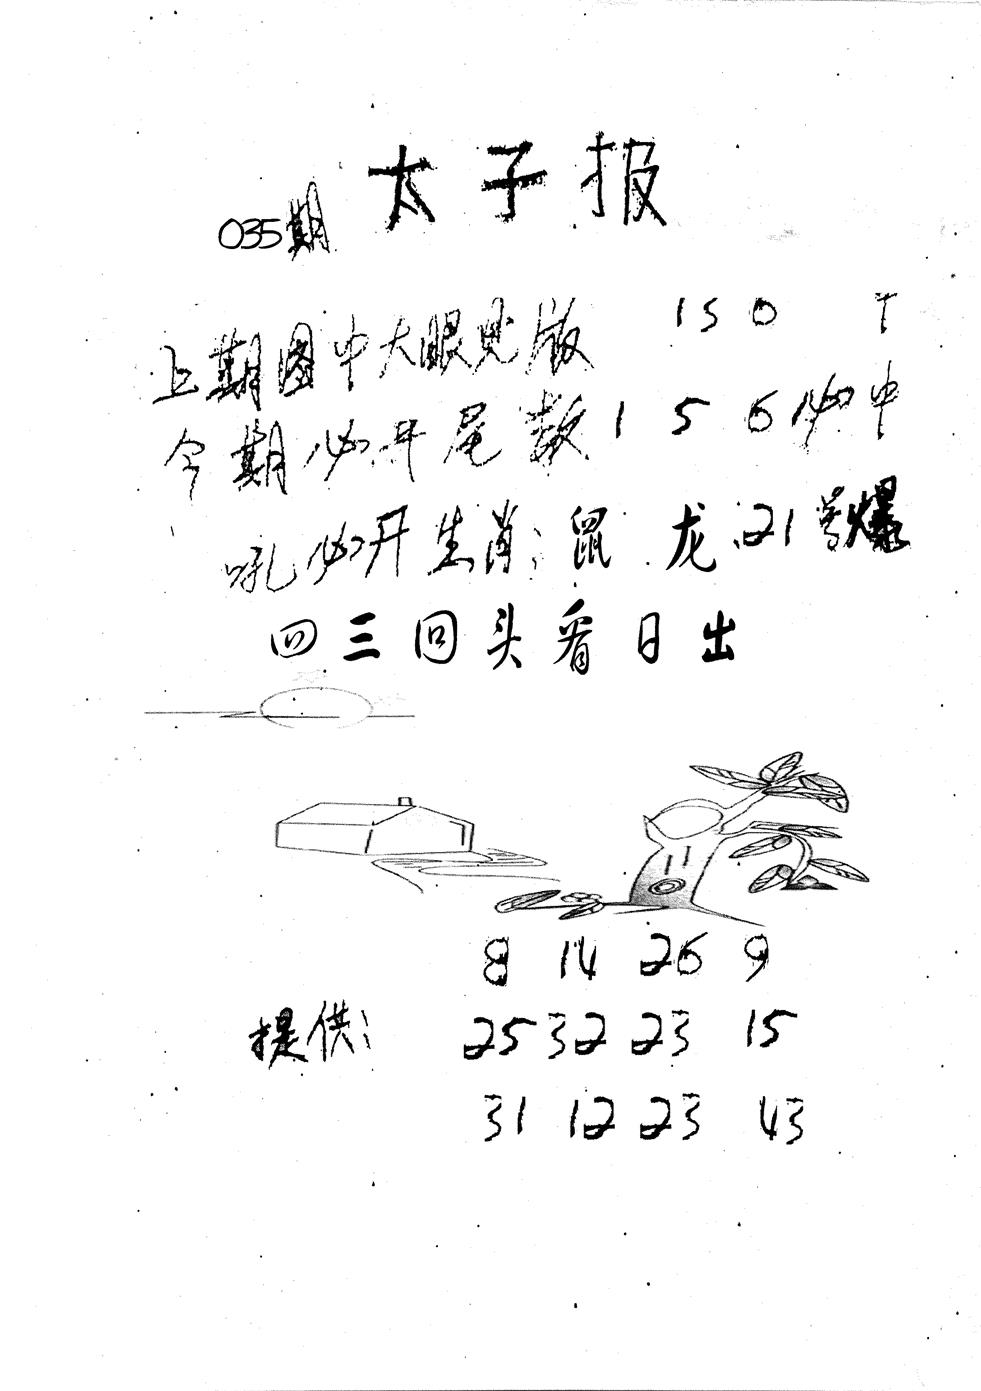 太子报
035期
上期图中大眼见版 150 T
今期必开尾数 1 5 6必中
吼必开生肖:鼠 龙.21号爆
四三回头看日出
8 14 26 9
提供: 25 32 23 15
31 12 23 43